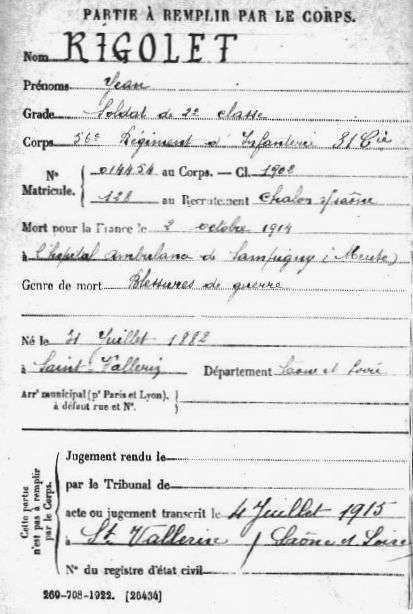 PARTIE À REMPLIR PAR LE CORPS.
Nom RIGOLET
Prénoms Jean
Grade Soldat de 2e classe
Corps 56e Régiment d'Infanterie 31 Cie
N° Matricule. { 014454 au Corps. — Cl. 1902
128 au Recrutement Chalon s/Saône
Mort pour la France le 2 octobre 1914
à l'hôpital ambulance de Sampigny (Meuse)
Genre de mort Blessures de guerre
Né le 31 Juillet 1882
à Saint-Vallerin Département Saône et Loire
Arrt municipal (pr Paris et Lyon), à défaut rue et N°. }
Cette partie n'est pas à remplir par le Corps.
Jugement rendu le
par le Tribunal de
acte ou jugement transcrit le 4 Juillet 1915
à St Vallerin / Saône et Loire
N° du registre d'état civil
269-708-1922. [26434]